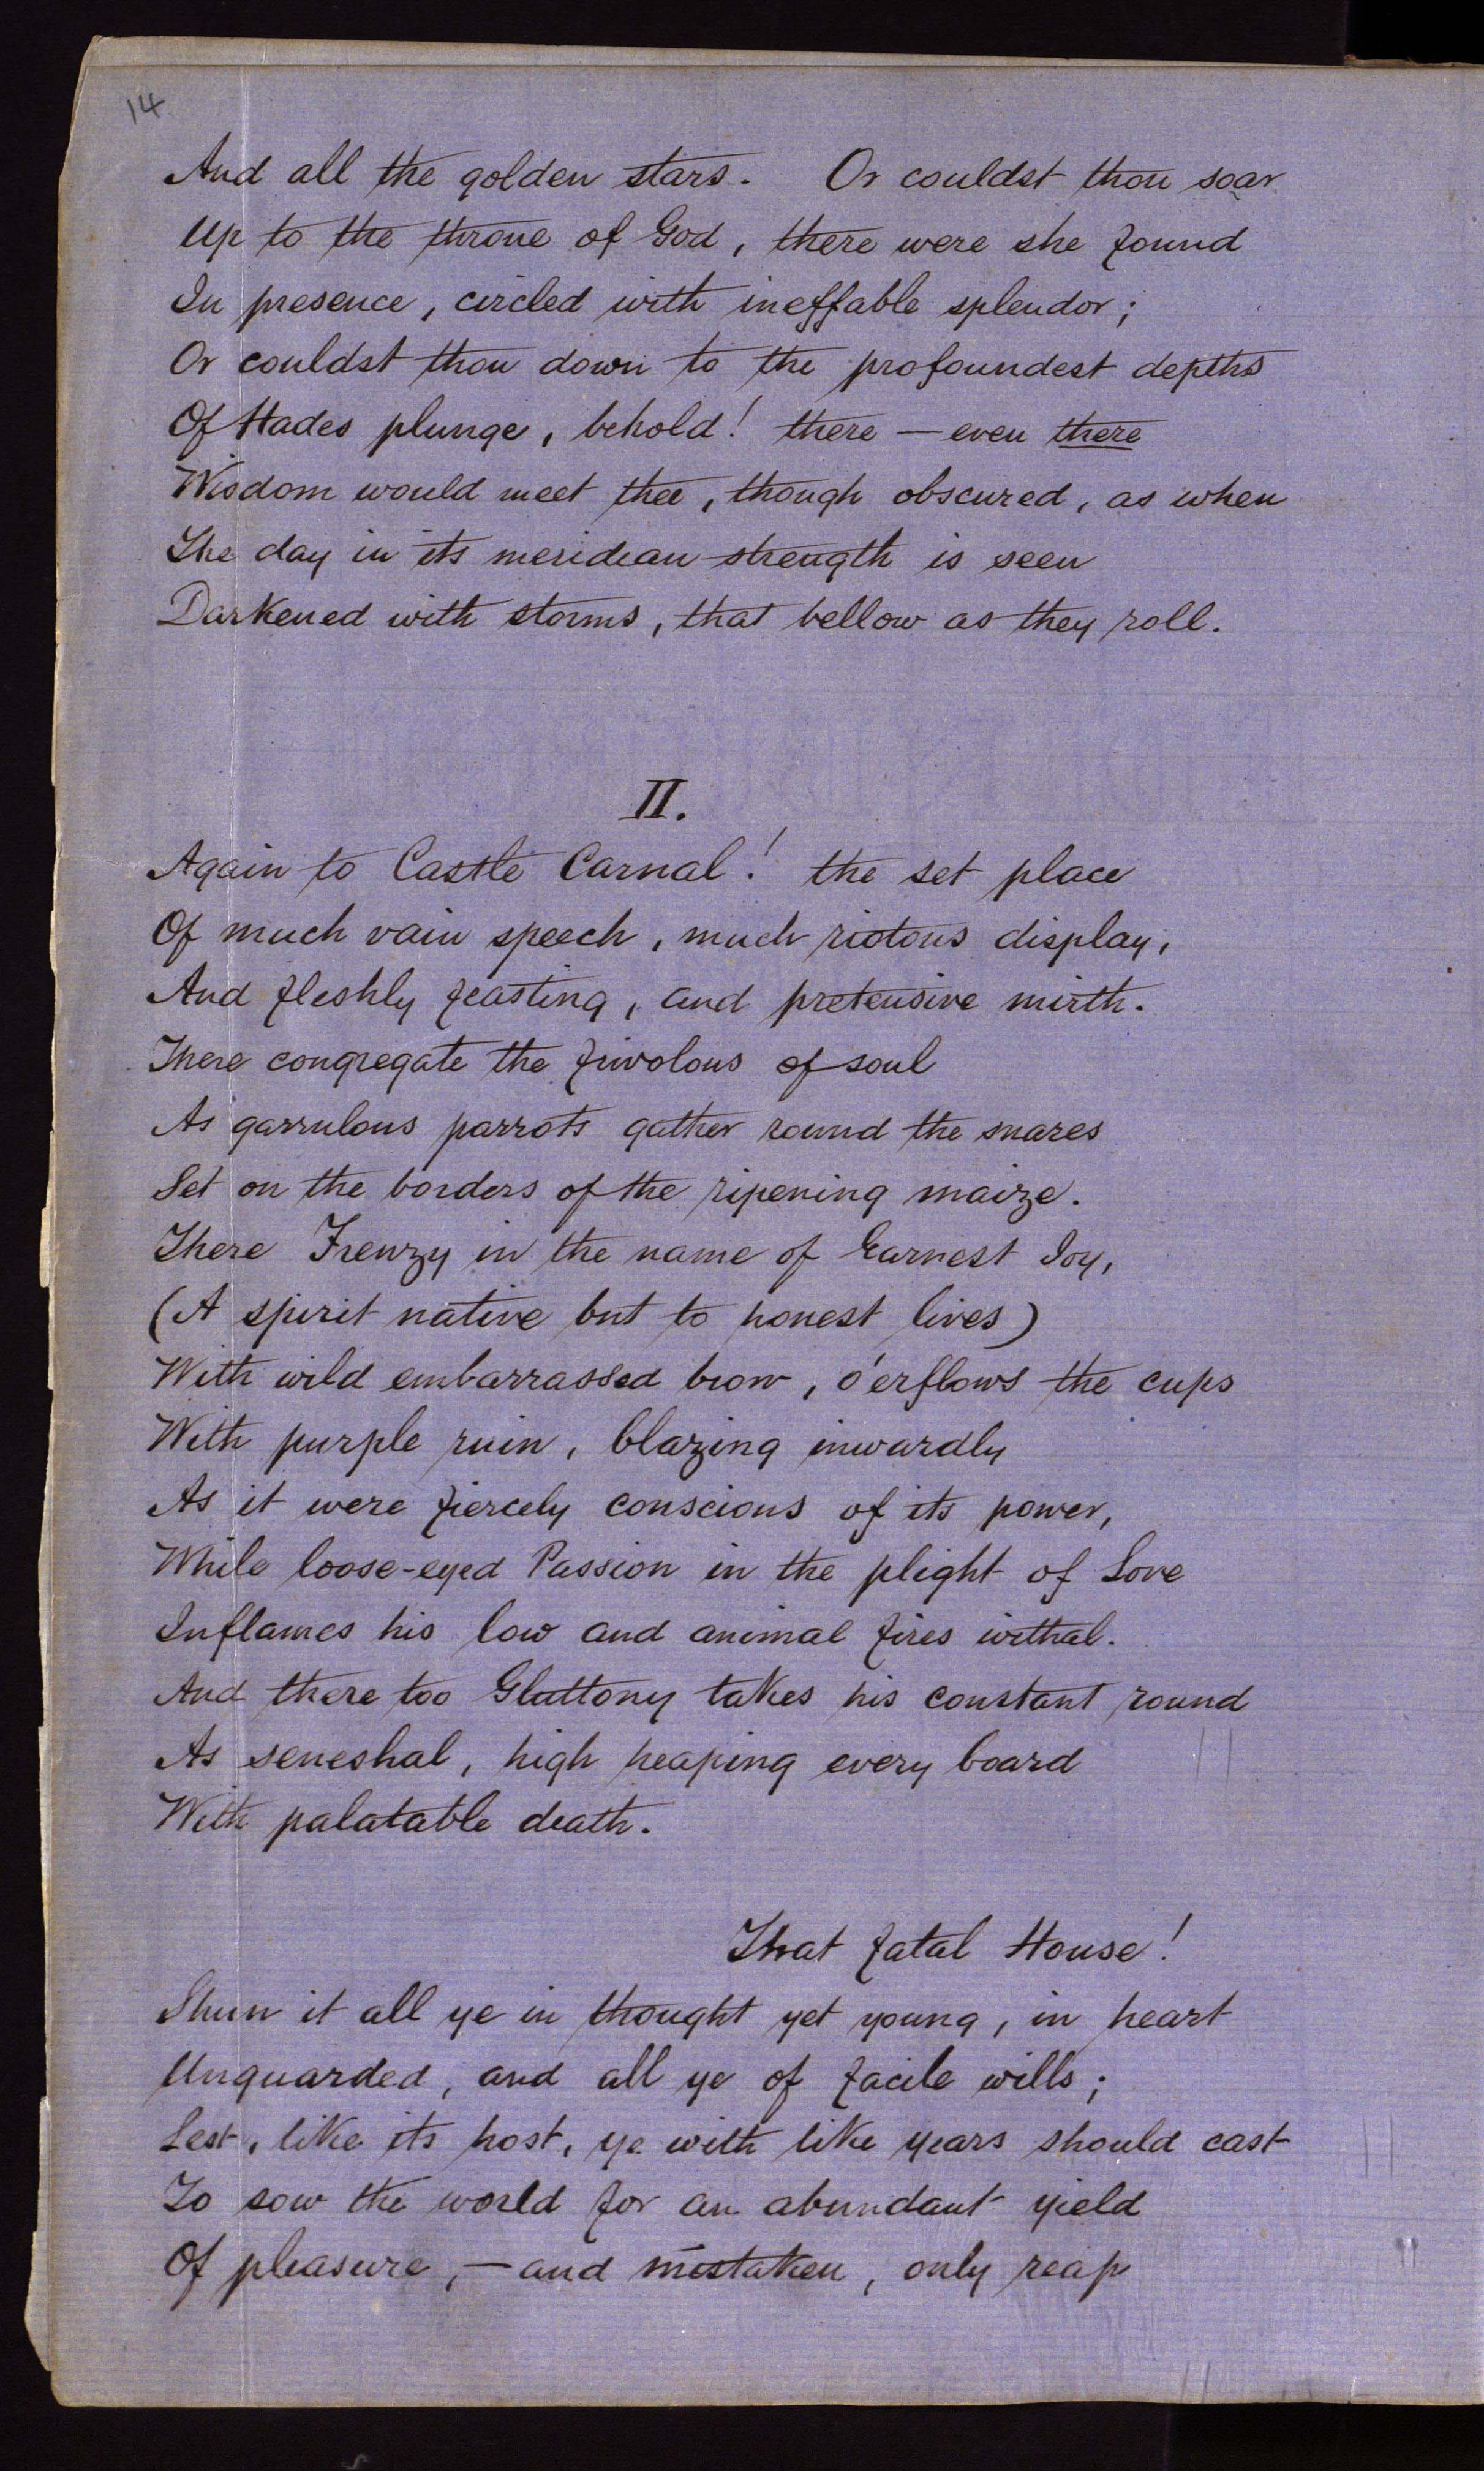 14
And all the golden stars. Or couldst thou soar
Up to the throne of God, there were she found
In presence, circled with ineffable splendor;
Or couldst thou down to the profoundest depths
Of Hades plunge, behold! there — even there
Wisdom would meet thee, though obscured, as when
The day in its meridean strength is seen
Darkened with storms, that bellow as they roll.
II.
Again to Castle Carnal! the set place
Of much vain speech, much riotous display,
And fleshly feasting, and pretensive mirth.
There congregate the frivolous of soul
As garrulous parrots gather round the snares
Set on the borders of the ripening maize.
There Frenzy in the name of Earnest Joy,
(A spirit native but to honest lives)
With wild embarrassed brow, o'erflows the cups
With purple ruin, blazing inwardly
As it were fiercely conscious of its power,
While loose-eyed Passion in the plight of Love
Inflames his low and animal fires withal.
And there too Gluttony takes his constant round
As seneshal, high heaping every board
With palatable death.
That fatal House!
Shun it all ye in thought yet young, in heart
Unguarded, and all ye of facile wills;
Lest, like its host, ye with like years should cast
To sow the world for an abundant yield
Of pleasure, — and mistaken, only reap